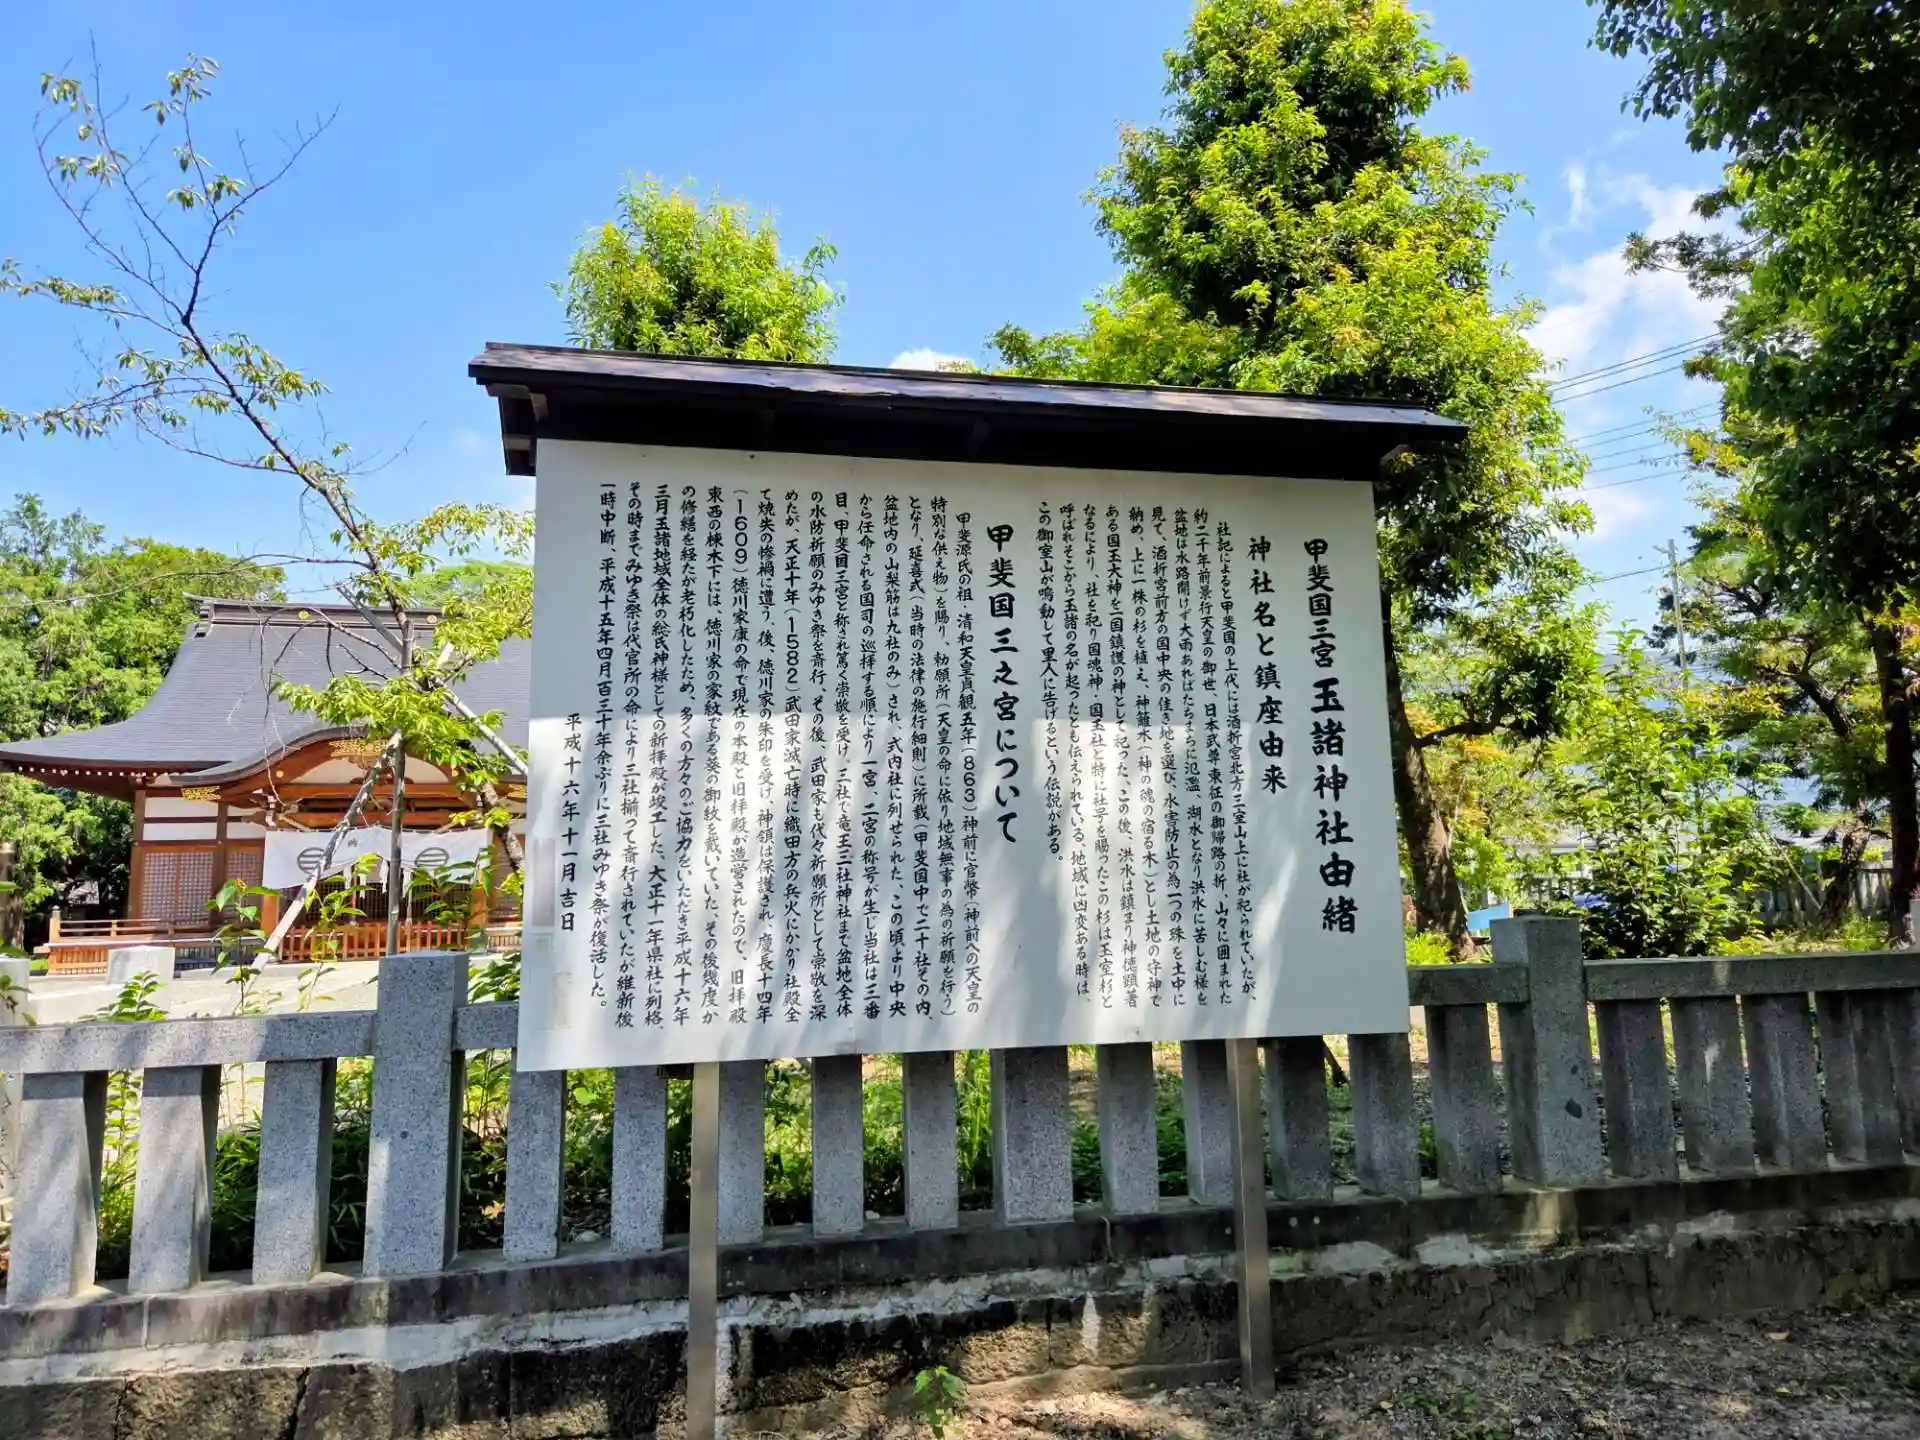 甲斐国三宮 玉諸神社由緒
神社名と鎮座由来
社記によると甲斐国の上代には酒折宮北方三室山上に社が祀られていたが、
約二千年前景行天皇の御世、日本武尊 東征の御帰路の折、山々に囲まれた
盆地は水路開けず大雨あればたちまちに氾濫、湖水となり洪水に苦しむ様を
見て、酒折宮前方の国中央の佳き地を選び、水害防止の為一つの珠を土中に
納め、上に一株の杉を植え、神籬木(神の魂の宿る木)とし土地の守神で
ある国玉大神を一国鎮護の神として祀った、この後、洪水は鎮まり神徳顕著
なるにより、社を祀り国魂神・国玉社と特に社号を賜ったこの杉は玉室杉と
呼ばれそこから玉諸の名が起つたとも伝えられている、地域に凶変ある時は、
この御室山が鳴動して里人に告げるという伝説がある。
甲斐国三之宮について
甲斐源氏の祖・清和天皇貞観五年(863)神前に官幣(神前への天皇の
特別な供え物)を賜り、勅願所(天皇の命に依り地域無事の為の祈願を行う)
となり、延喜式(当時の法律の施行細則)に所載(甲斐国中で二十社その内、
盆地内の山梨筋は九社のみ)され、式内社に列せられた、この頃より中央
から任命される国司の巡拝する順により一宮、二宮の称号が生じ当社は三番
目、甲斐国三宮と称され篤く崇敬を受け、三社で竜王三社神社まで盆地全体
の水防祈願のみゆき祭を斎行、その後、武田家も代々祈願所として崇敬を深
めたが、天正十年(1582)武田家滅亡時に織田方の兵火にかかり社殿全
て焼失の惨禍に遭う、後、徳川家の朱印を受け、神領は保護され、慶長十四年
(1609)徳川家康の命で現在の本殿と旧拝殿が造営されたので、旧拝殿
東西の棟木下には、徳川家の家紋である葵の御紋を戴いていた、その後幾度か
の修繕を経たが老朽化したため、多くの方々のご協力をいただき平成十六年
三月玉諸地域全体の総氏神様としての新拝殿が竣工した、大正十一年県社に列格、
その時までみゆき祭は代官所の命により三社揃って斎行されていたが維新後
一時中断、平成十五年四月百三十年余ぶりに三社みゆき祭が復活した。
平成十六年十一月吉日